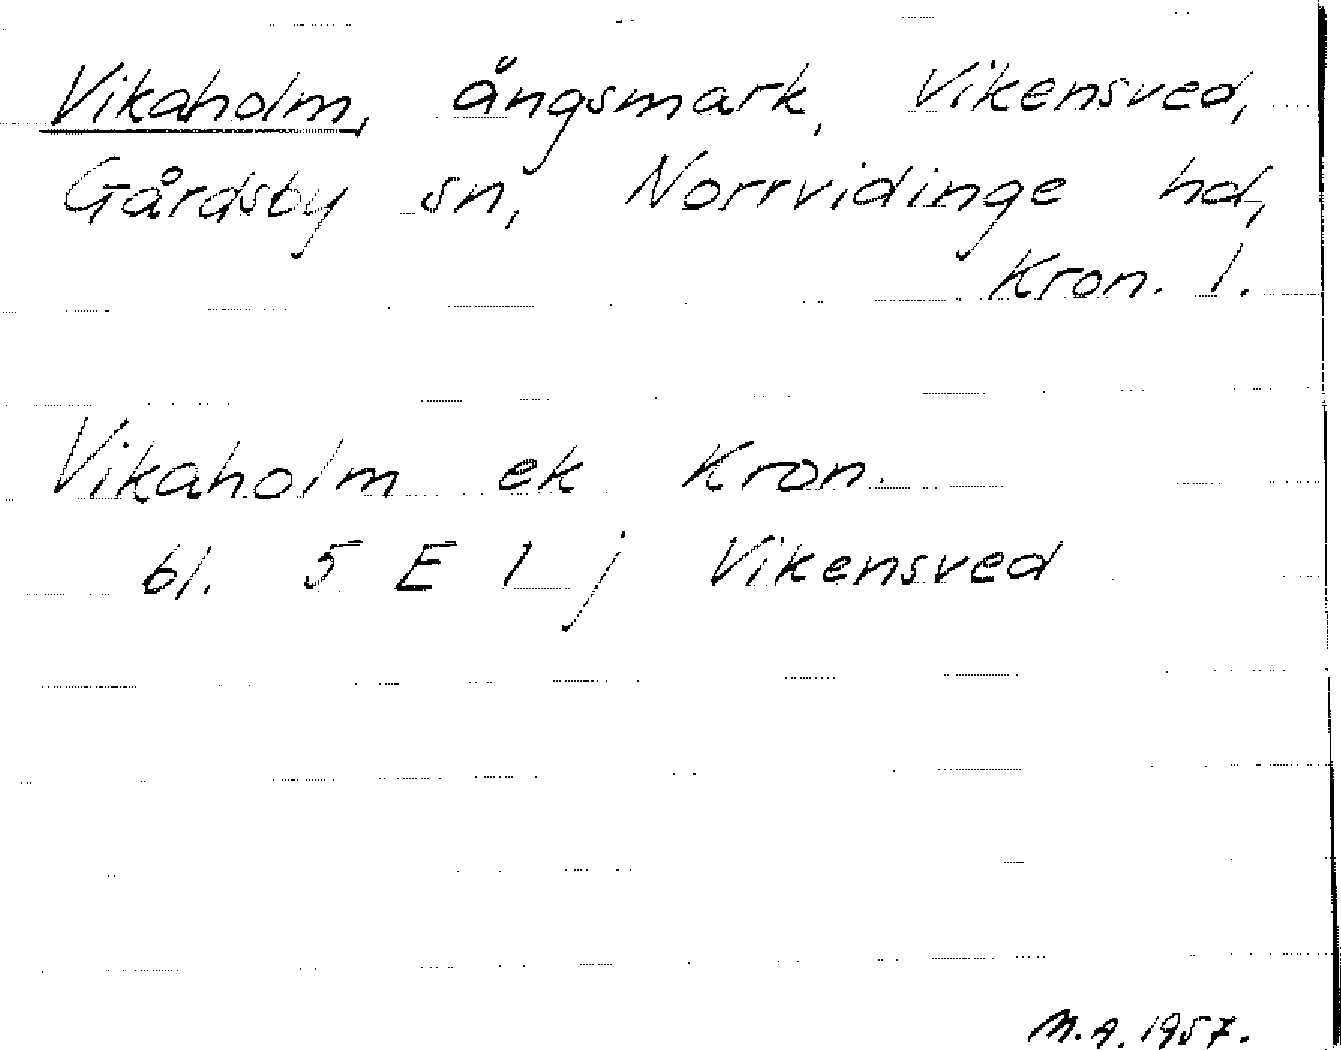 Vikaholm, ängsmark, Vikensved,
Gårdsby sn, Norrvidinge hd,
Kron. l.
Vikaholm ek Kron.
bl. 5 E 1 j Vikensved
M.A. 1957.